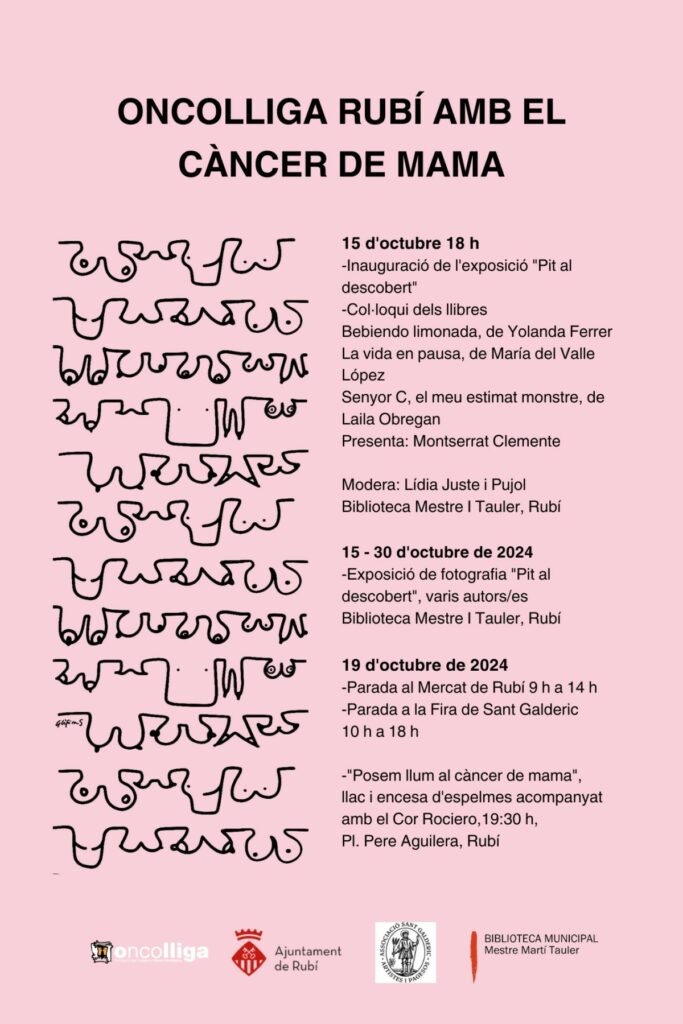 ONCOLLIGA RUBÍ AMB EL
CÀNCER DE MAMA
15 d'octubre 18 h
-Inauguració de l'exposició "Pit al
descobert"
-Col·loqui dels llibres
Bebiendo limonada, de Yolanda Ferrer
La vida en pausa, de María del Valle
López
Senyor C, el meu estimat monstre, de
Laila Obregan
Presenta: Montserrat Clemente
Modera: Lídia Juste i Pujol
Biblioteca Mestre I Tauler, Rubí
15 - 30 d'octubre de 2024
-Exposició de fotografia "Pit al
descobert", varis autors/es
Biblioteca Mestre I Tauler, Rubí
19 d'octubre de 2024
-Parada al Mercat de Rubí 9 h a 14 h
-Parada a la Fira de Sant Galderic
10 h a 18 h
-"Posem llum al càncer de mama",
llac i encesa d'espelmes acompanyat
amb el Cor Rociero,19:30 h,
Pl. Pere Aguilera, Rubí
oncolliga
Ajuntament
de Rubí
ASSOCIACIÓ SANT GALDERIC
ARTISTES I PAGESOS
BIBLIOTECA MUNICIPAL
Mestre Martí Tauler